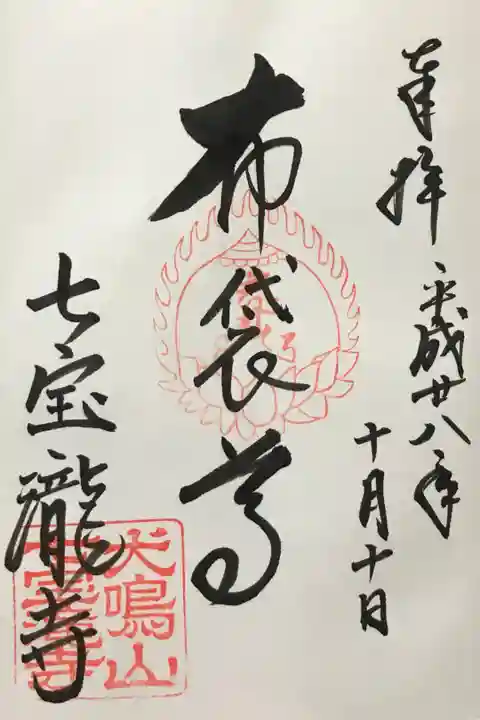 奉拝 平成廿八年
十月十日
布袋尊
七宝瀧寺
犬鳴山
七宝瀧寺